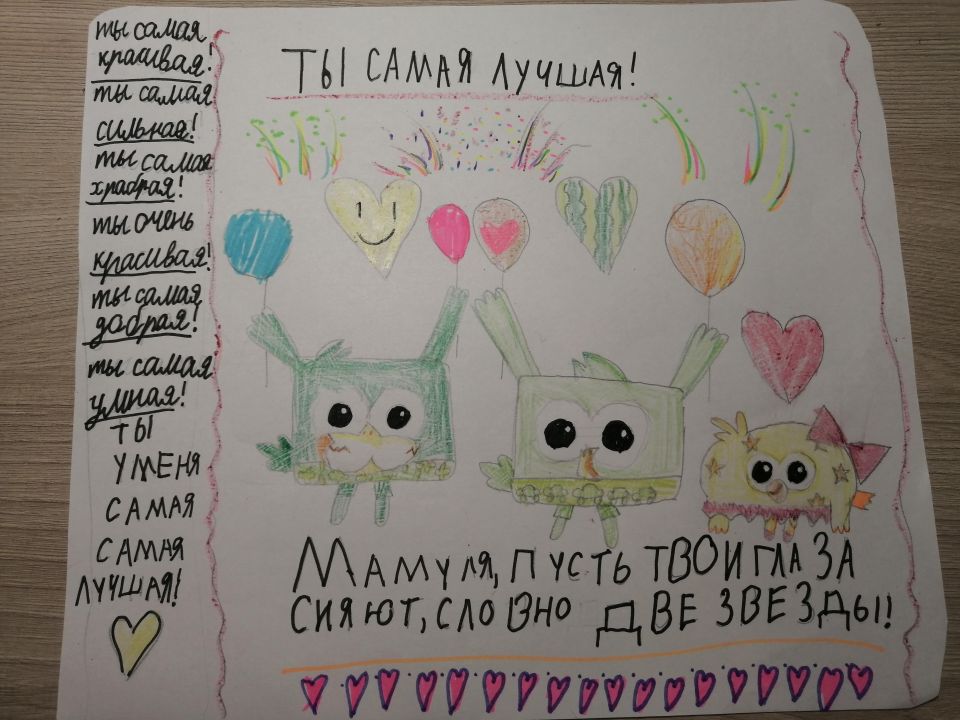 ты самая
красивая!
ты самая
сильная!
ты самая
храбрая!
ты очень
красивая!
ты самая
добрая!
ты самая
умная!
ТЫ
У МЕНЯ
САМАЯ
САМАЯ
ЛУЧШАЯ!
ТЫ САМАЯ ЛУЧШАЯ!
МАМУЛЯ, ПУСТЬ ТВОИ ГЛАЗА
СИЯЮТ, СЛОВНО ДВЕ ЗВЕЗДЫ!